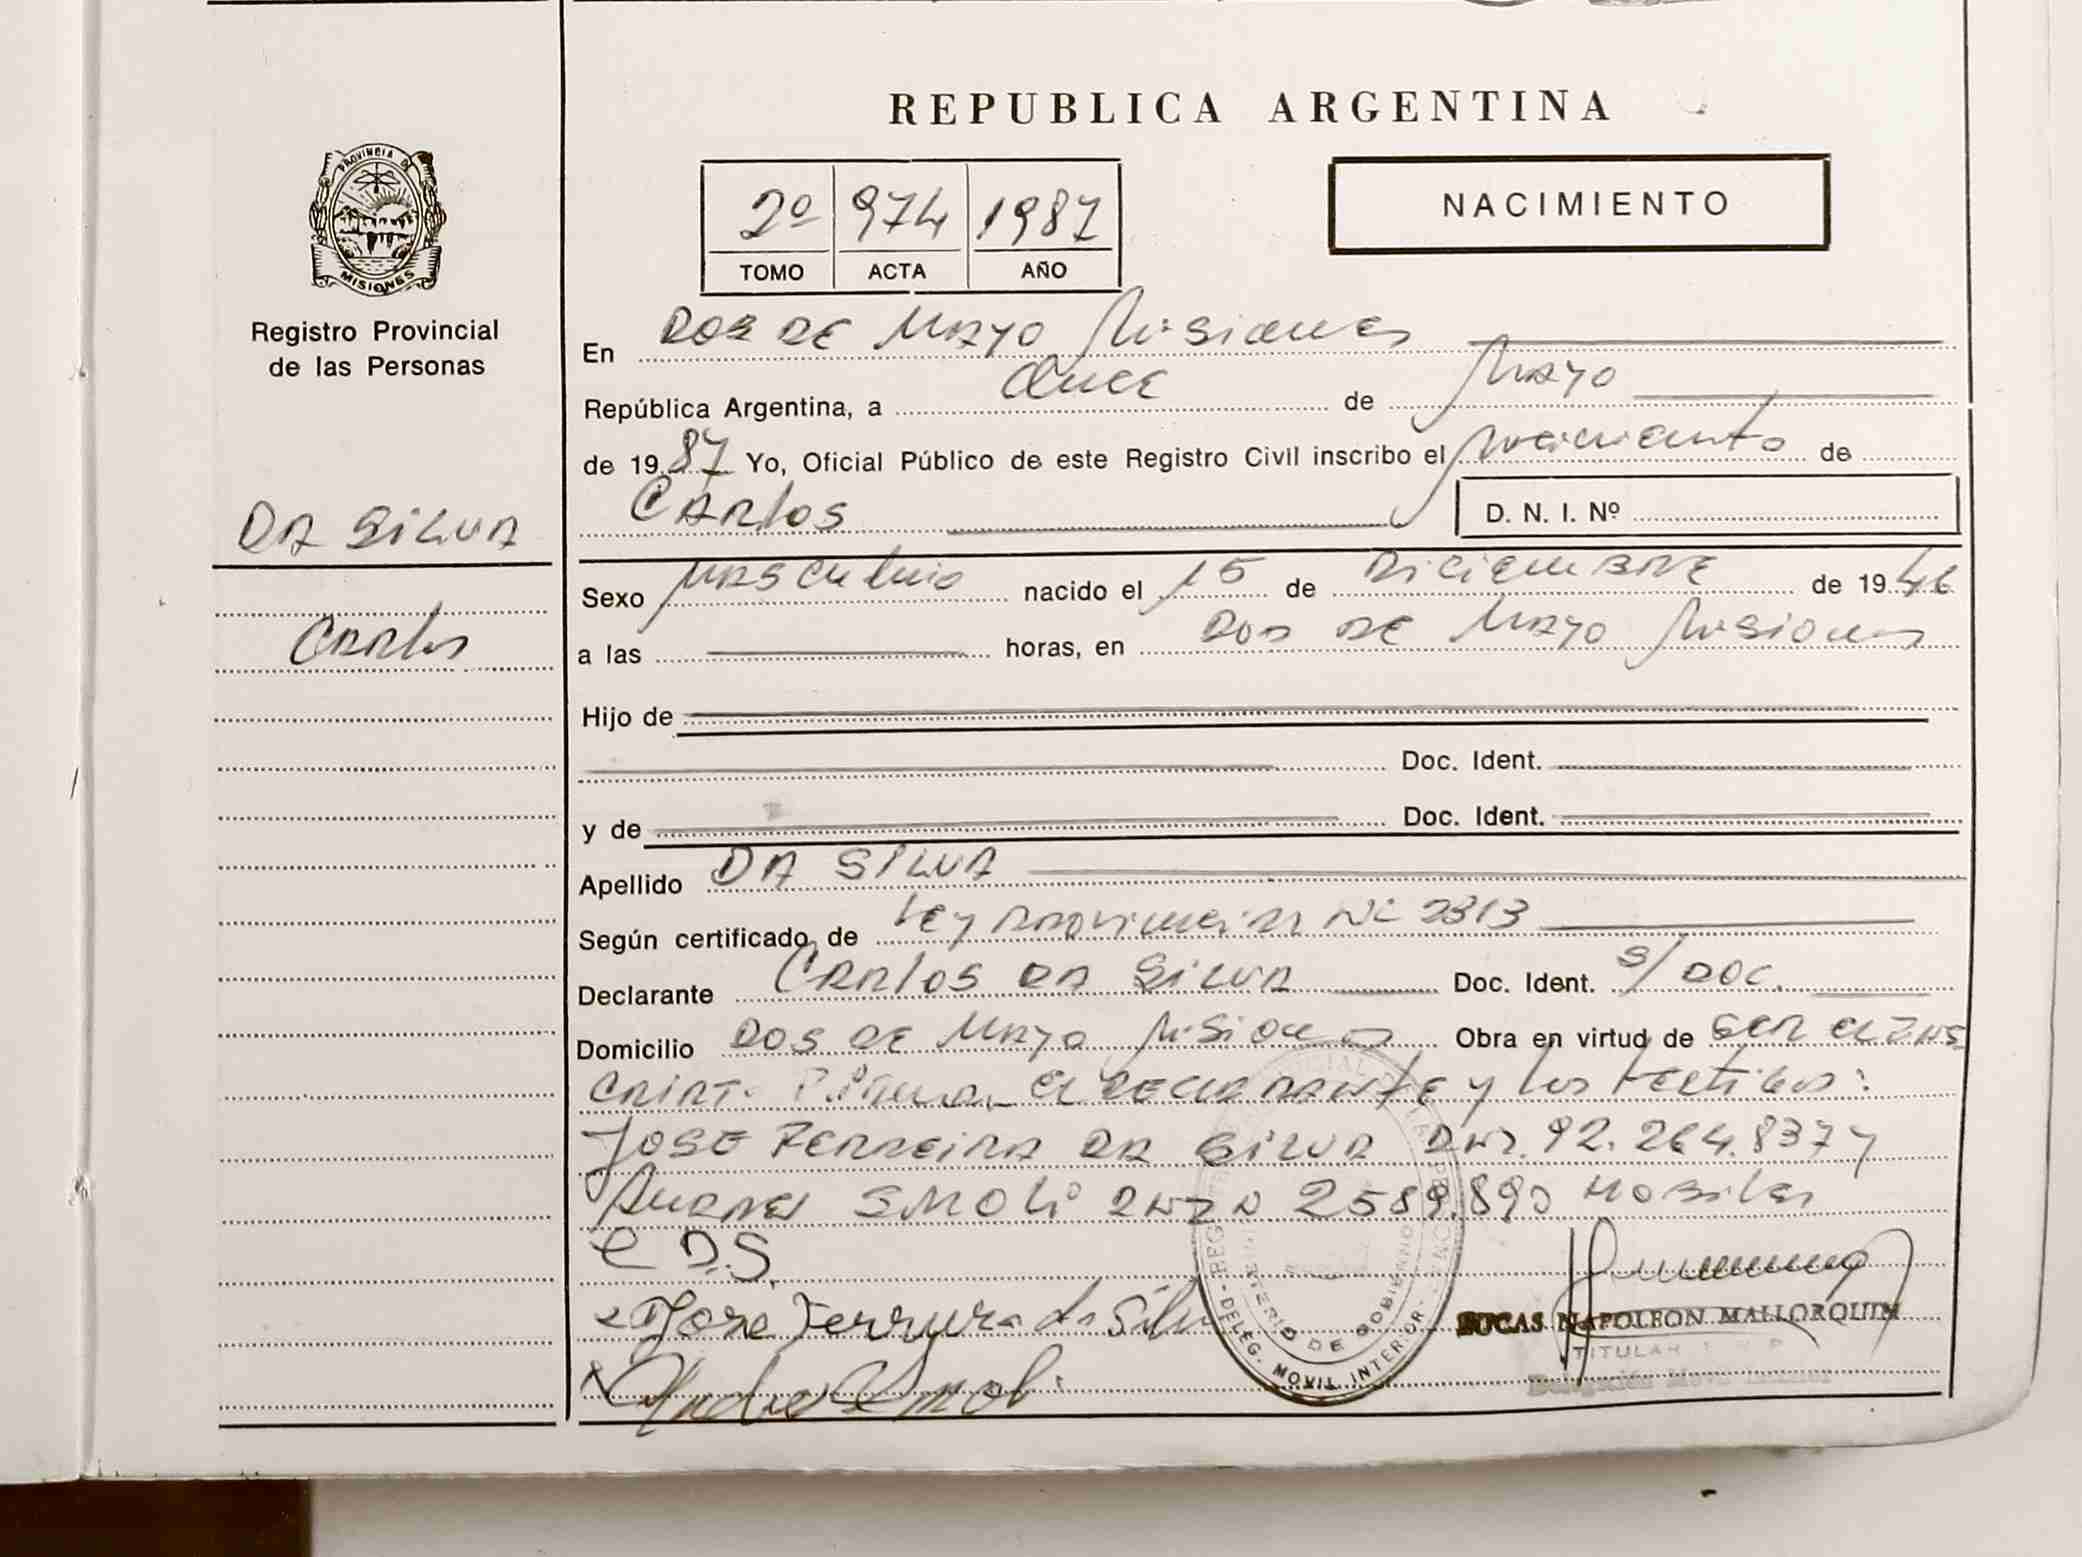 REPUBLICA ARGENTINA
PROVINCIA DE
MISIONES
Registro Provincial
de las Personas
DA SILVA
Carlos
2º 974 1987
TOMO ACTA AÑO
NACIMIENTO
En DOS DE MAYO Misiones
República Argentina, a once de Mayo
de 1987 Yo, Oficial Público de este Registro Civil inscribo el nacimiento de
CARlos D. N. I. Nº
Sexo Masculino nacido el 15 de Diciembre de 1946
a las horas, en DOS DE MAYO Misiones
Hijo de
Doc. Ident.
y de Doc. Ident.
Apellido DA SILVA
Según certificado de Ley Provincial Nº 2313
Declarante CARlos DA SILVA Doc. Ident. S/ DOC.
Domicilio DOS DE MAYO Misiones Obra en virtud de SER EL INS
CRIPT. Firman el declarante y los testigos:
JOSE FERREIRA DA SILVA DNI. 92.264.837 y
SMOLi DNI Nº 2589.890
C D.S.
Jose Ferreira da Silva
DELEG. MOVIL INTERIOR
MINISTERIO DE GOBIERNO
LUCAS NAPOLEON MALLORQUIN
TITULAR